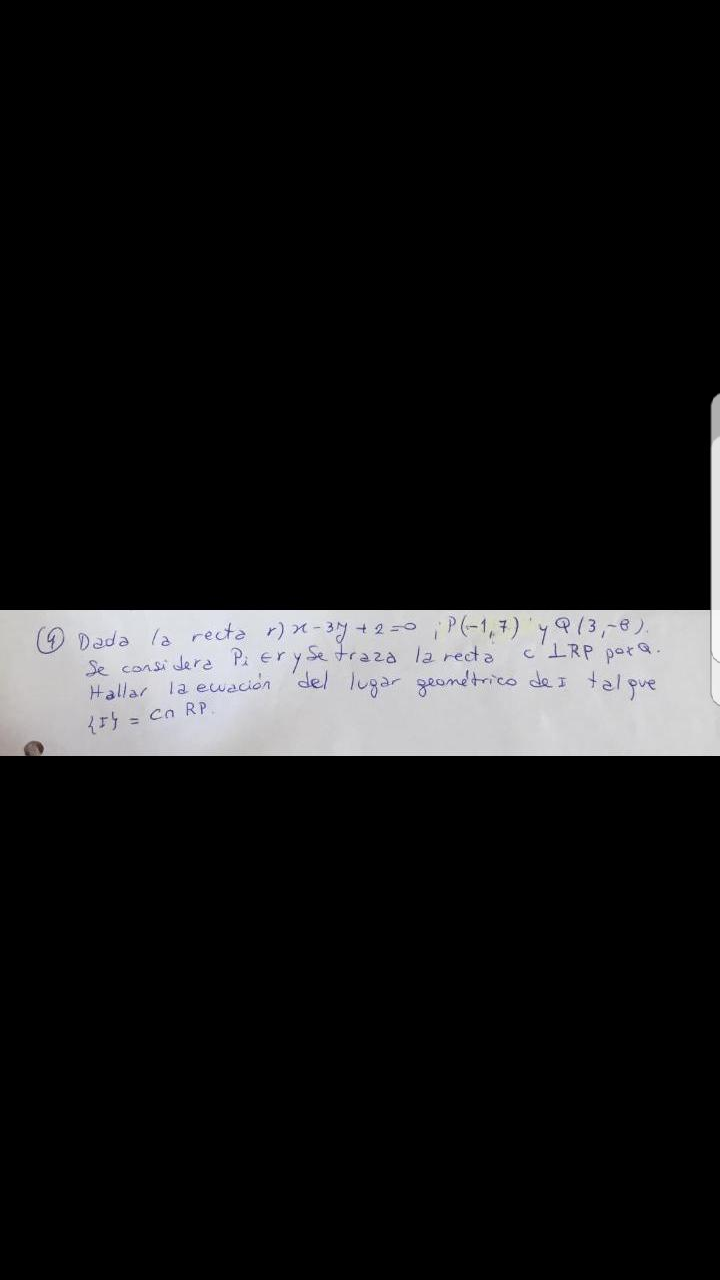 ④ Dada la recta r) x-3y+2=0 ; P(-1,7) y Q(3,-8).
Se considera Pi ∈ r y Se traza la recta c ⊥RP por Q.
Hallar la ecuación del lugar geométrico de I tal que
{I} = C∩ RP.